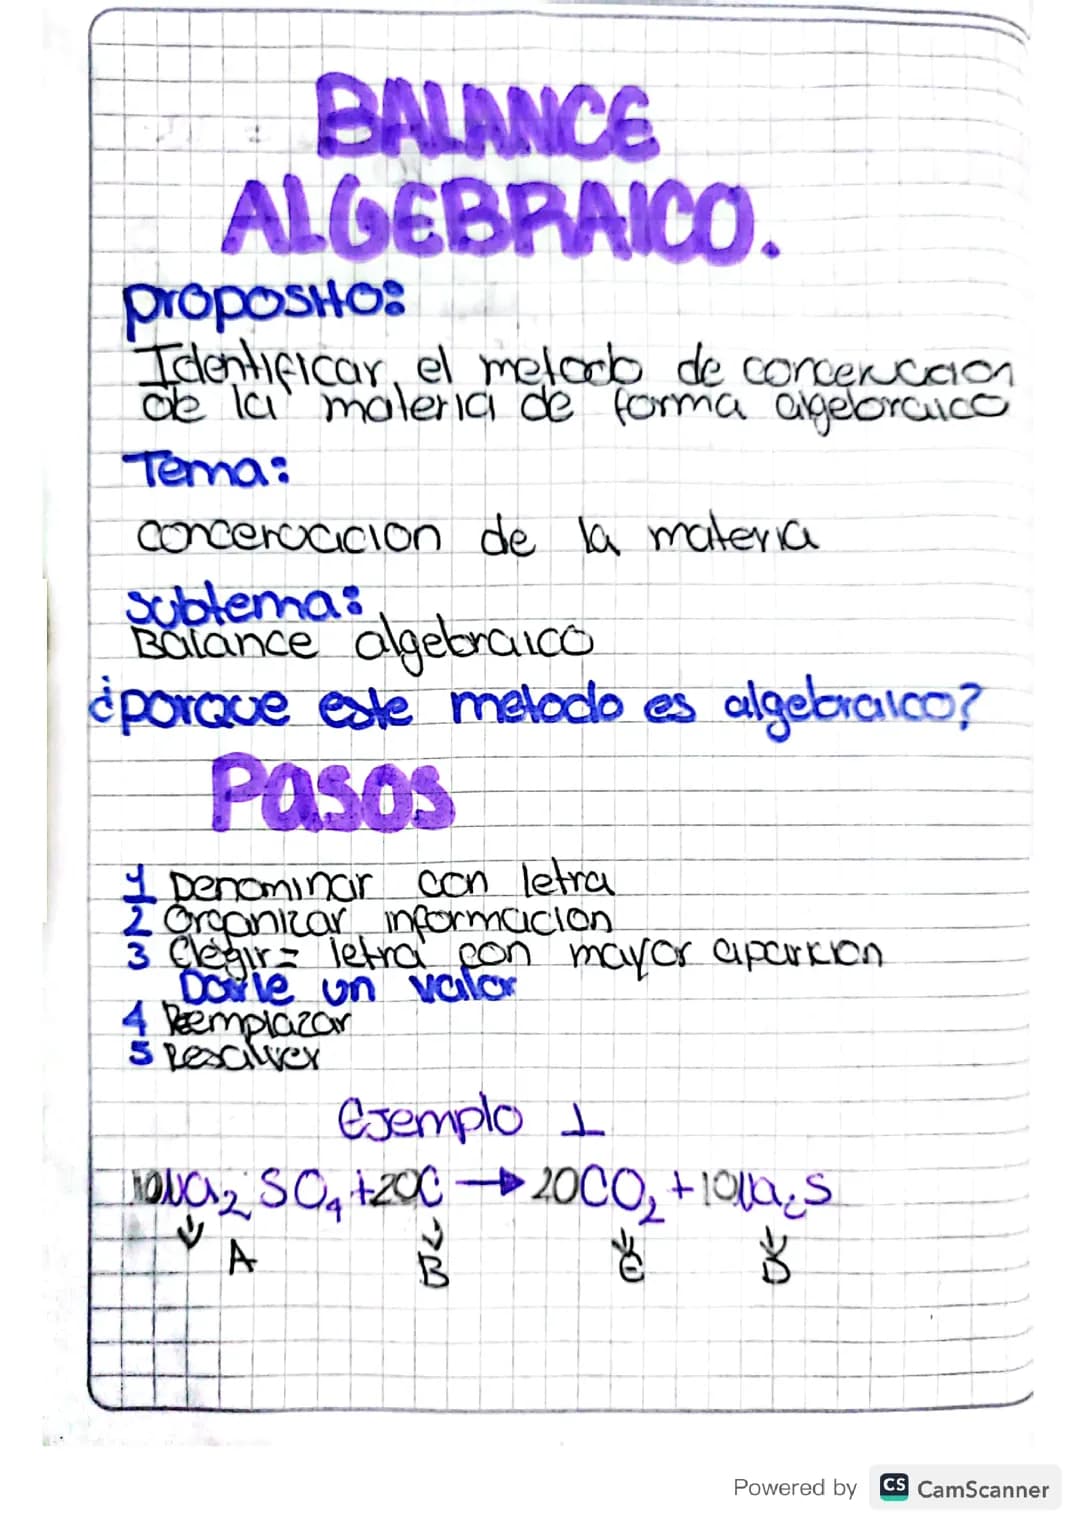 BALANCE
ALGEBRAICO.
proposito:
Identificar el metodo de concervacion
de la materia de forma algebraico
Tema:
concervacion de la materia
subtema:
Balance algebraico
¿porque este metodo es algebraico?
Pasos
1 Denominar con letra
2 Organizar informacion
3 Elegir= letra con mayor aparicion
Darle un valor
4 Reemplazar
5 Resolver
Ejemplo 1
10Na₂SO₄+20C → 20CO₂+10Na₂S
A B C D
Powered by CS CamScanner